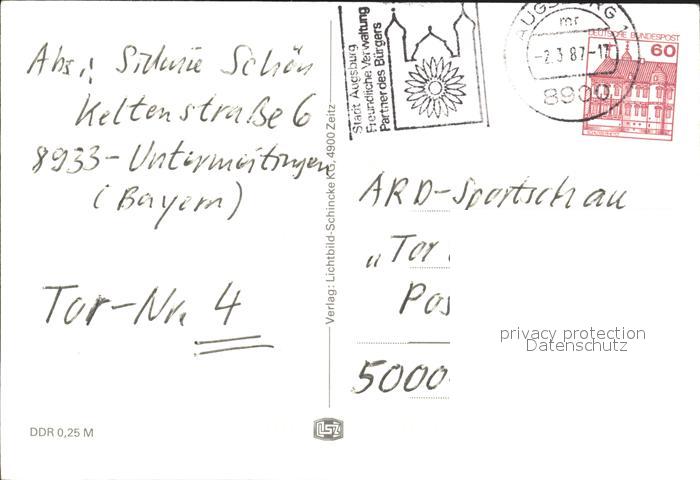 Abs.: Sidonie Schön
Keltenstraße 6
8933-Untermeitingen
(Bayern)
Tor-Nr. 4
DDR 0,25 M
Verlag: Lichtbild-Schincke KG, 4900 Zeitz
LSZ
Stadt Augsburg
Freundliche Verwaltung
Partner des Bürgers
AUGSBURG 1
mr
-2.3.87-17
8900
DEUTSCHE BUNDESPOST
60
ARD-Sportschau
"Tor
Pos
5000
privacy protection
Datenschutz